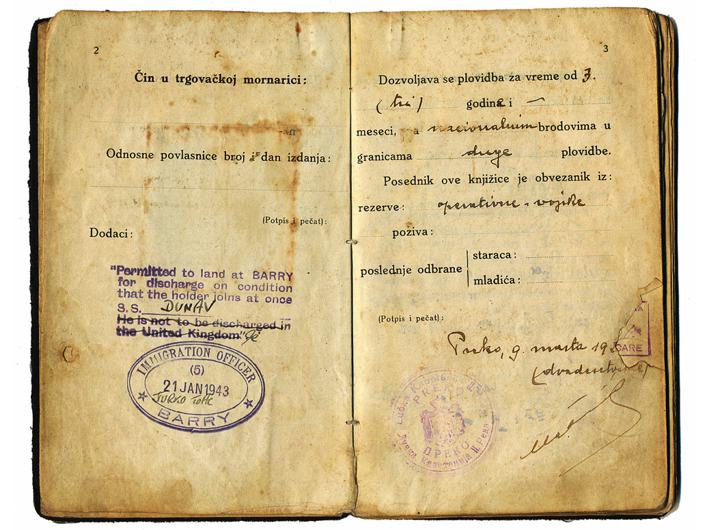 2
Čin u trgovačkoj mornarici:
Odnosne povlasnice broj i dan izdanja:
(Potpis i pečat):
Dodaci:
"Permitted to land at BARRY
for discharge on condition
that the holder joins at once
S.S. DUNAV
He is not to be discharged in
the United Kingdom"
IMMIGRATION OFFICER
(5)
21 JAN 1943
BARRY
3
Dozvoljava se plovidba za vreme od 3.
(tri) godine i —
meseci, na nacionalnim brodovima u
granicama druge plovidbe.
Posednik ove knjižice je obvezanik iz:
rezerve: operativne vojske
poziva:
poslednje odbrane
staraca:
mladića:
(Potpis i pečat):
CARE
9. marta
ПРЕКО